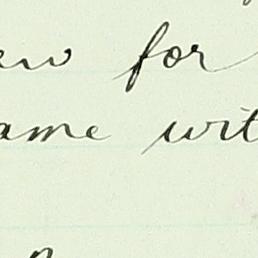 ew for
ame wit